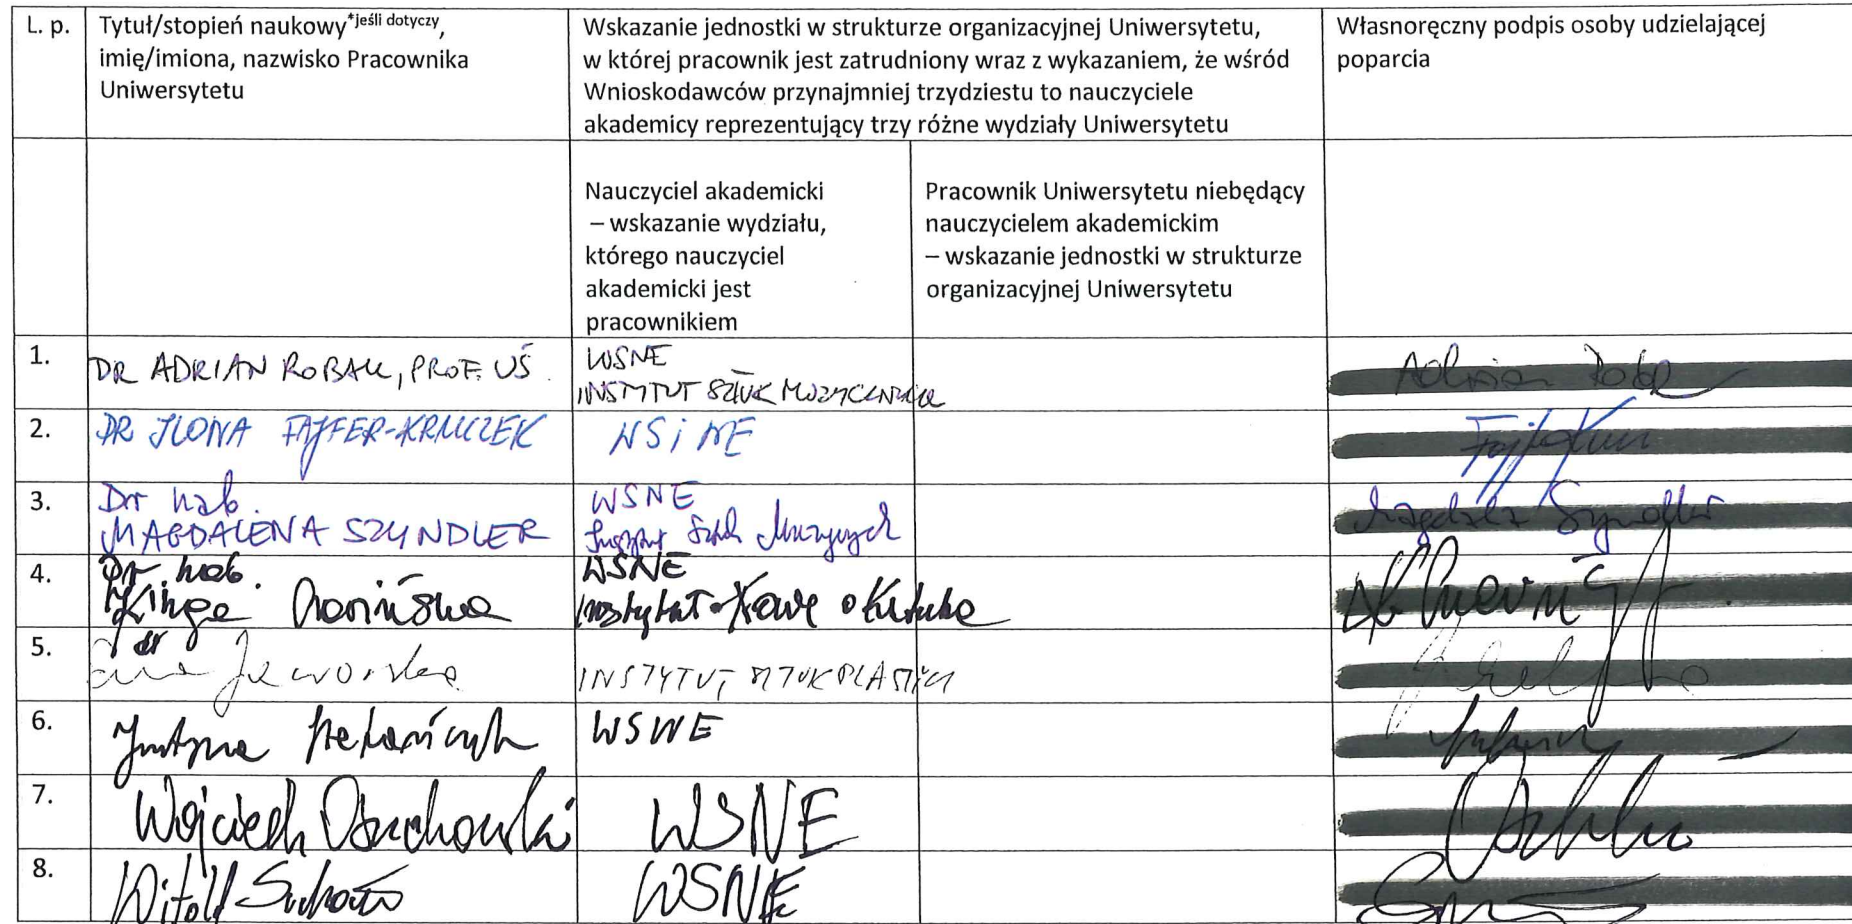 L. p.
Tytuł/stopień naukowy*jeśli dotyczy,
imię/imiona, nazwisko Pracownika
Uniwersytetu
Wskazanie jednostki w strukturze organizacyjnej Uniwersytetu,
w której pracownik jest zatrudniony wraz z wykazaniem, że wśród
Wnioskodawców przynajmniej trzydziestu to nauczyciele
akademicy reprezentujący trzy różne wydziały Uniwersytetu
Własnoręczny podpis osoby udzielającej
poparcia
Nauczyciel akademicki
– wskazanie wydziału,
którego nauczyciel
akademicki jest
pracownikiem
Pracownik Uniwersytetu niebędący
nauczycielem akademickim
– wskazanie jednostki w strukturze
organizacyjnej Uniwersytetu
1.
DR ADRIAN ROBAK, PROF. UŚ
WSNE
INSTYTUT SZTUK MUZYCZNYCH
2.
DR ILONA FAJFER-KRUCZEK
WSiNE
3.
Dr hab.
MAGDALENA SZYNDLER
WSNE
Instytut Sztuk Muzycznych
4.
Dr hab.
Kinga
WSNE
Instytut
5.
dr
Jaworska
INSTYTUT SZTUK PLASTYCZ
6.
Justyna
WSNE
7.
Wojciech Osuchowski
WSNE
8.
Witold
WSNE